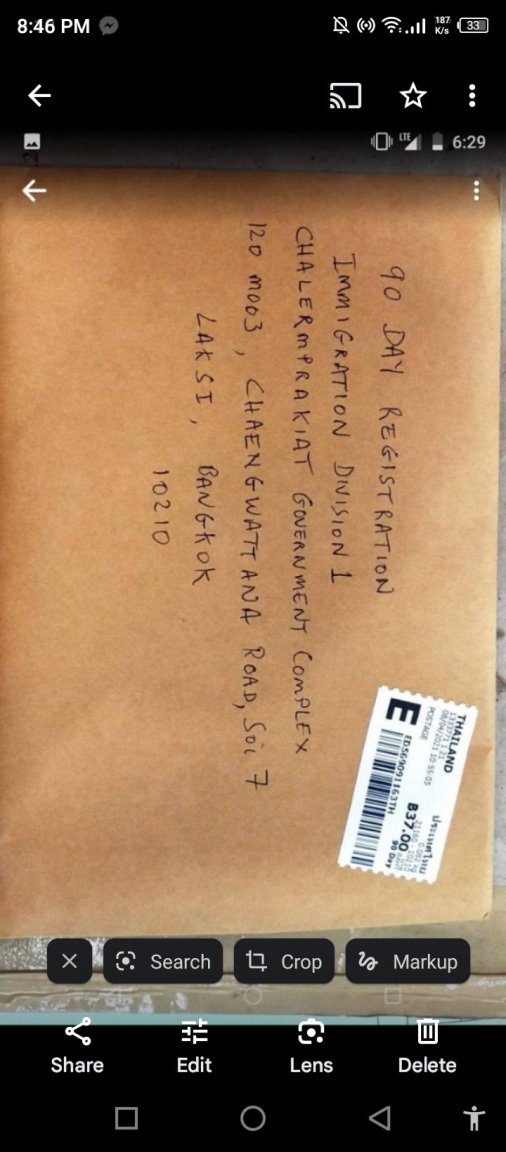 8:46 PM
187
K/s
33
LTE
6:29
90 DAY REGISTRATION
IMMIGRATION DIVISION 1
CHALERMPRAKIAT GOVERNMENT COMPLEX
120 MOO3, CHAENGWATTANA ROAD, Soi 7
LAKSI, BANGKOK
10210
THAILAND
ประเทศไทย
08/04/2021 10:55:05
POSTAGE
฿37.00
E
ED569091163TH
90 Day
Search
Crop
Markup
Share
Edit
Lens
Delete